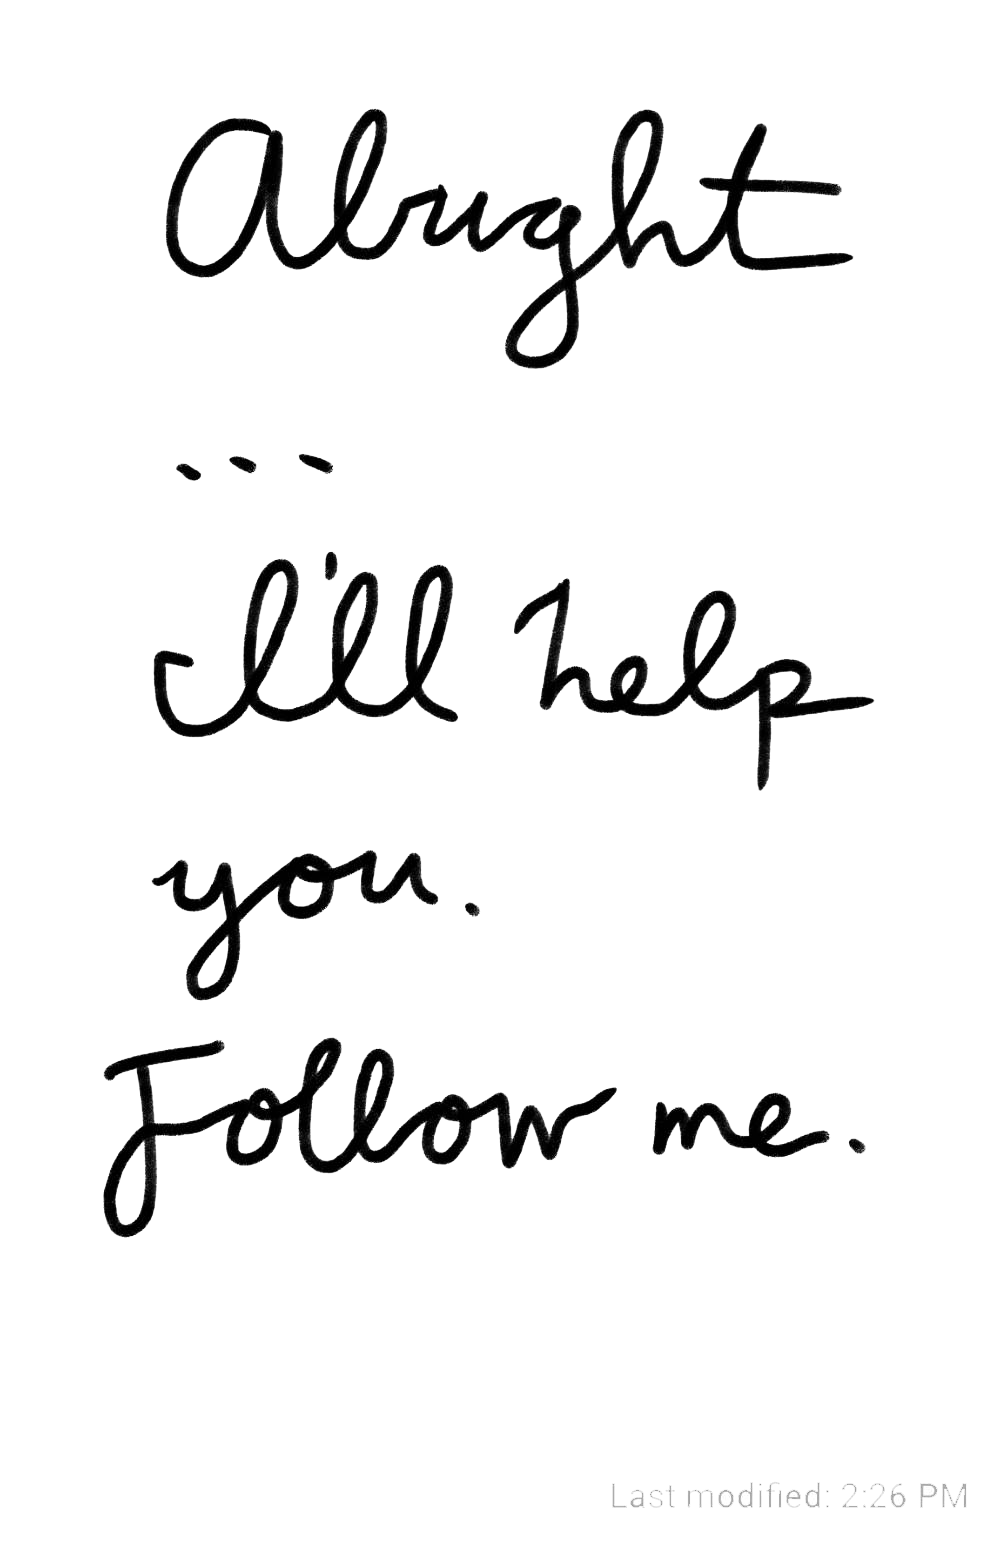 Alright
...
I'll help
you.
Follow me.
Last modified: 2:26 PM